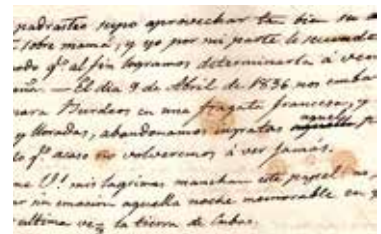 padrastro supo aprovechar tan bien su
sobre mamá, y yo por mi parte le secundé
qº al fin logramos determinarla á
— El dia 9 de Abril de 1836 nos
para Burdeos en una fragata francesa, y
y lloradas, abandonamos ingratas
qº acaso no volveremos á ver jamas.
mis lagrimas manchan este papel; no
sin emocion aquella noche memorable en
ultima vez la tierra de Cuba.